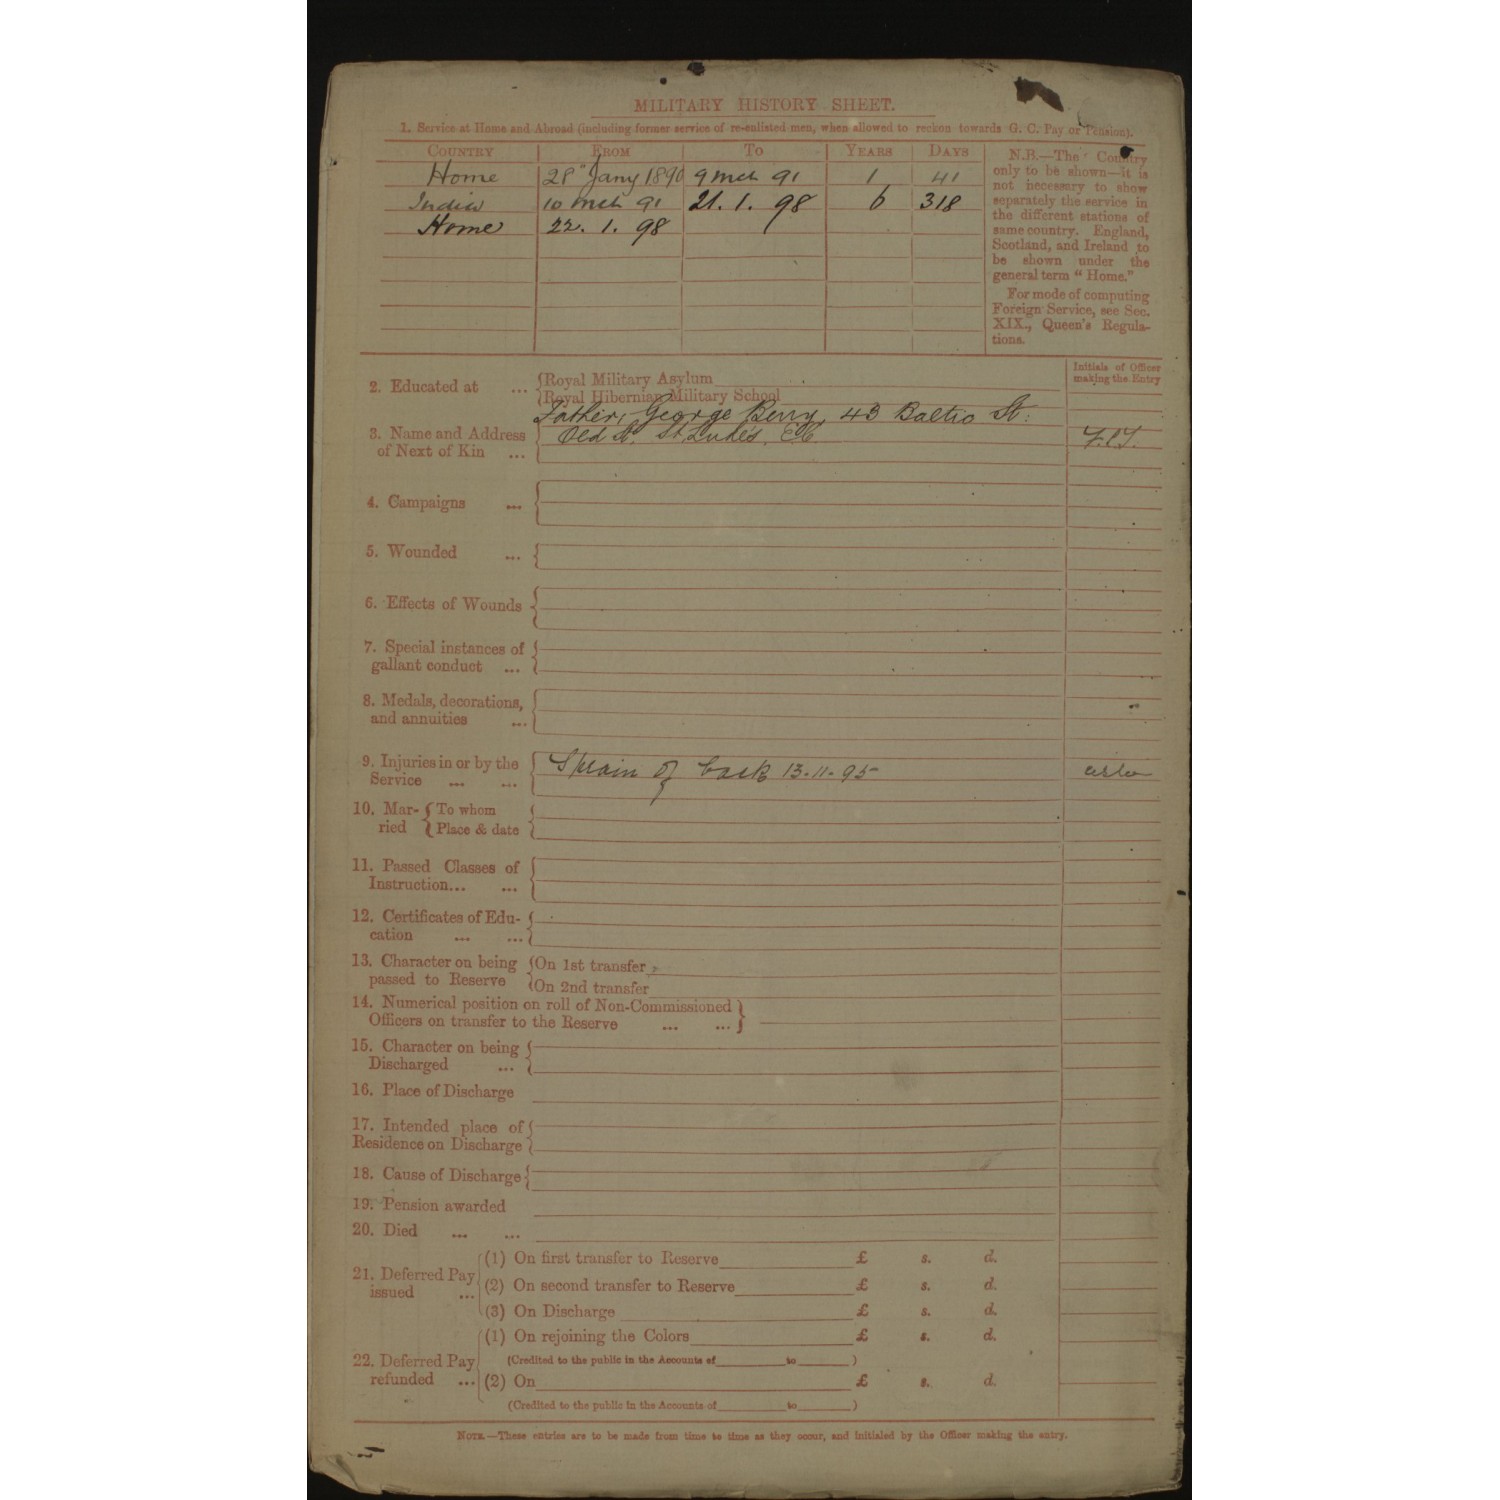 MILITARY HISTORY SHEET.
1. Service at Home and Abroad (including former service of re-enlisted men, when allowed to reckon towards G. C. Pay or Pension).
COUNTRY FROM TO YEARS DAYS
Home 28th Jany 1890 9 Mch 91 1 41
India 10 Mch 91 21. 1. 98 6 318
Home 22. 1. 98
N.B.—The Country
only to be shown—it is
not necessary to show
separately the service in
the different stations of
same country. England,
Scotland, and Ireland to
be shown under the
general term "Home."
For mode of computing
Foreign Service, see Sec.
XIX., Queen's Regula-
tions.
Initials of Officer
making the Entry
2. Educated at ... Royal Military Asylum
Royal Hibernian Military School
Father, George Berry, 43 Baltic St.
3. Name and Address Old St. St Luke's. E.C.
of Next of Kin ...
4. Campaigns ...
5. Wounded ...
6. Effects of Wounds
7. Special instances of
gallant conduct ...
8. Medals, decorations,
and annuities ...
9. Injuries in or by the Sprain of back 13.11.95
Service ... ...
10. Mar- To whom
ried Place & date
11. Passed Classes of
Instruction... ...
12. Certificates of Edu-
cation ... ...
13. Character on being On 1st transfer
passed to Reserve On 2nd transfer
14. Numerical position on roll of Non-Commissioned
Officers on transfer to the Reserve ... ...
15. Character on being
Discharged ...
16. Place of Discharge
17. Intended place of
Residence on Discharge
18. Cause of Discharge
19. Pension awarded
20. Died ... ...
(1) On first transfer to Reserve £ s. d.
21. Deferred Pay
issued ...
(2) On second transfer to Reserve £ s. d.
(3) On Discharge £ s. d.
(1) On rejoining the Colors £ s. d.
22. Deferred Pay (Credited to the public in the Accounts of to )
refunded ... (2) On £ s. d.
(Credited to the public in the Accounts of to )
NOTE.—These entries are to be made from time to time as they occur, and initialed by the Officer making the entry.